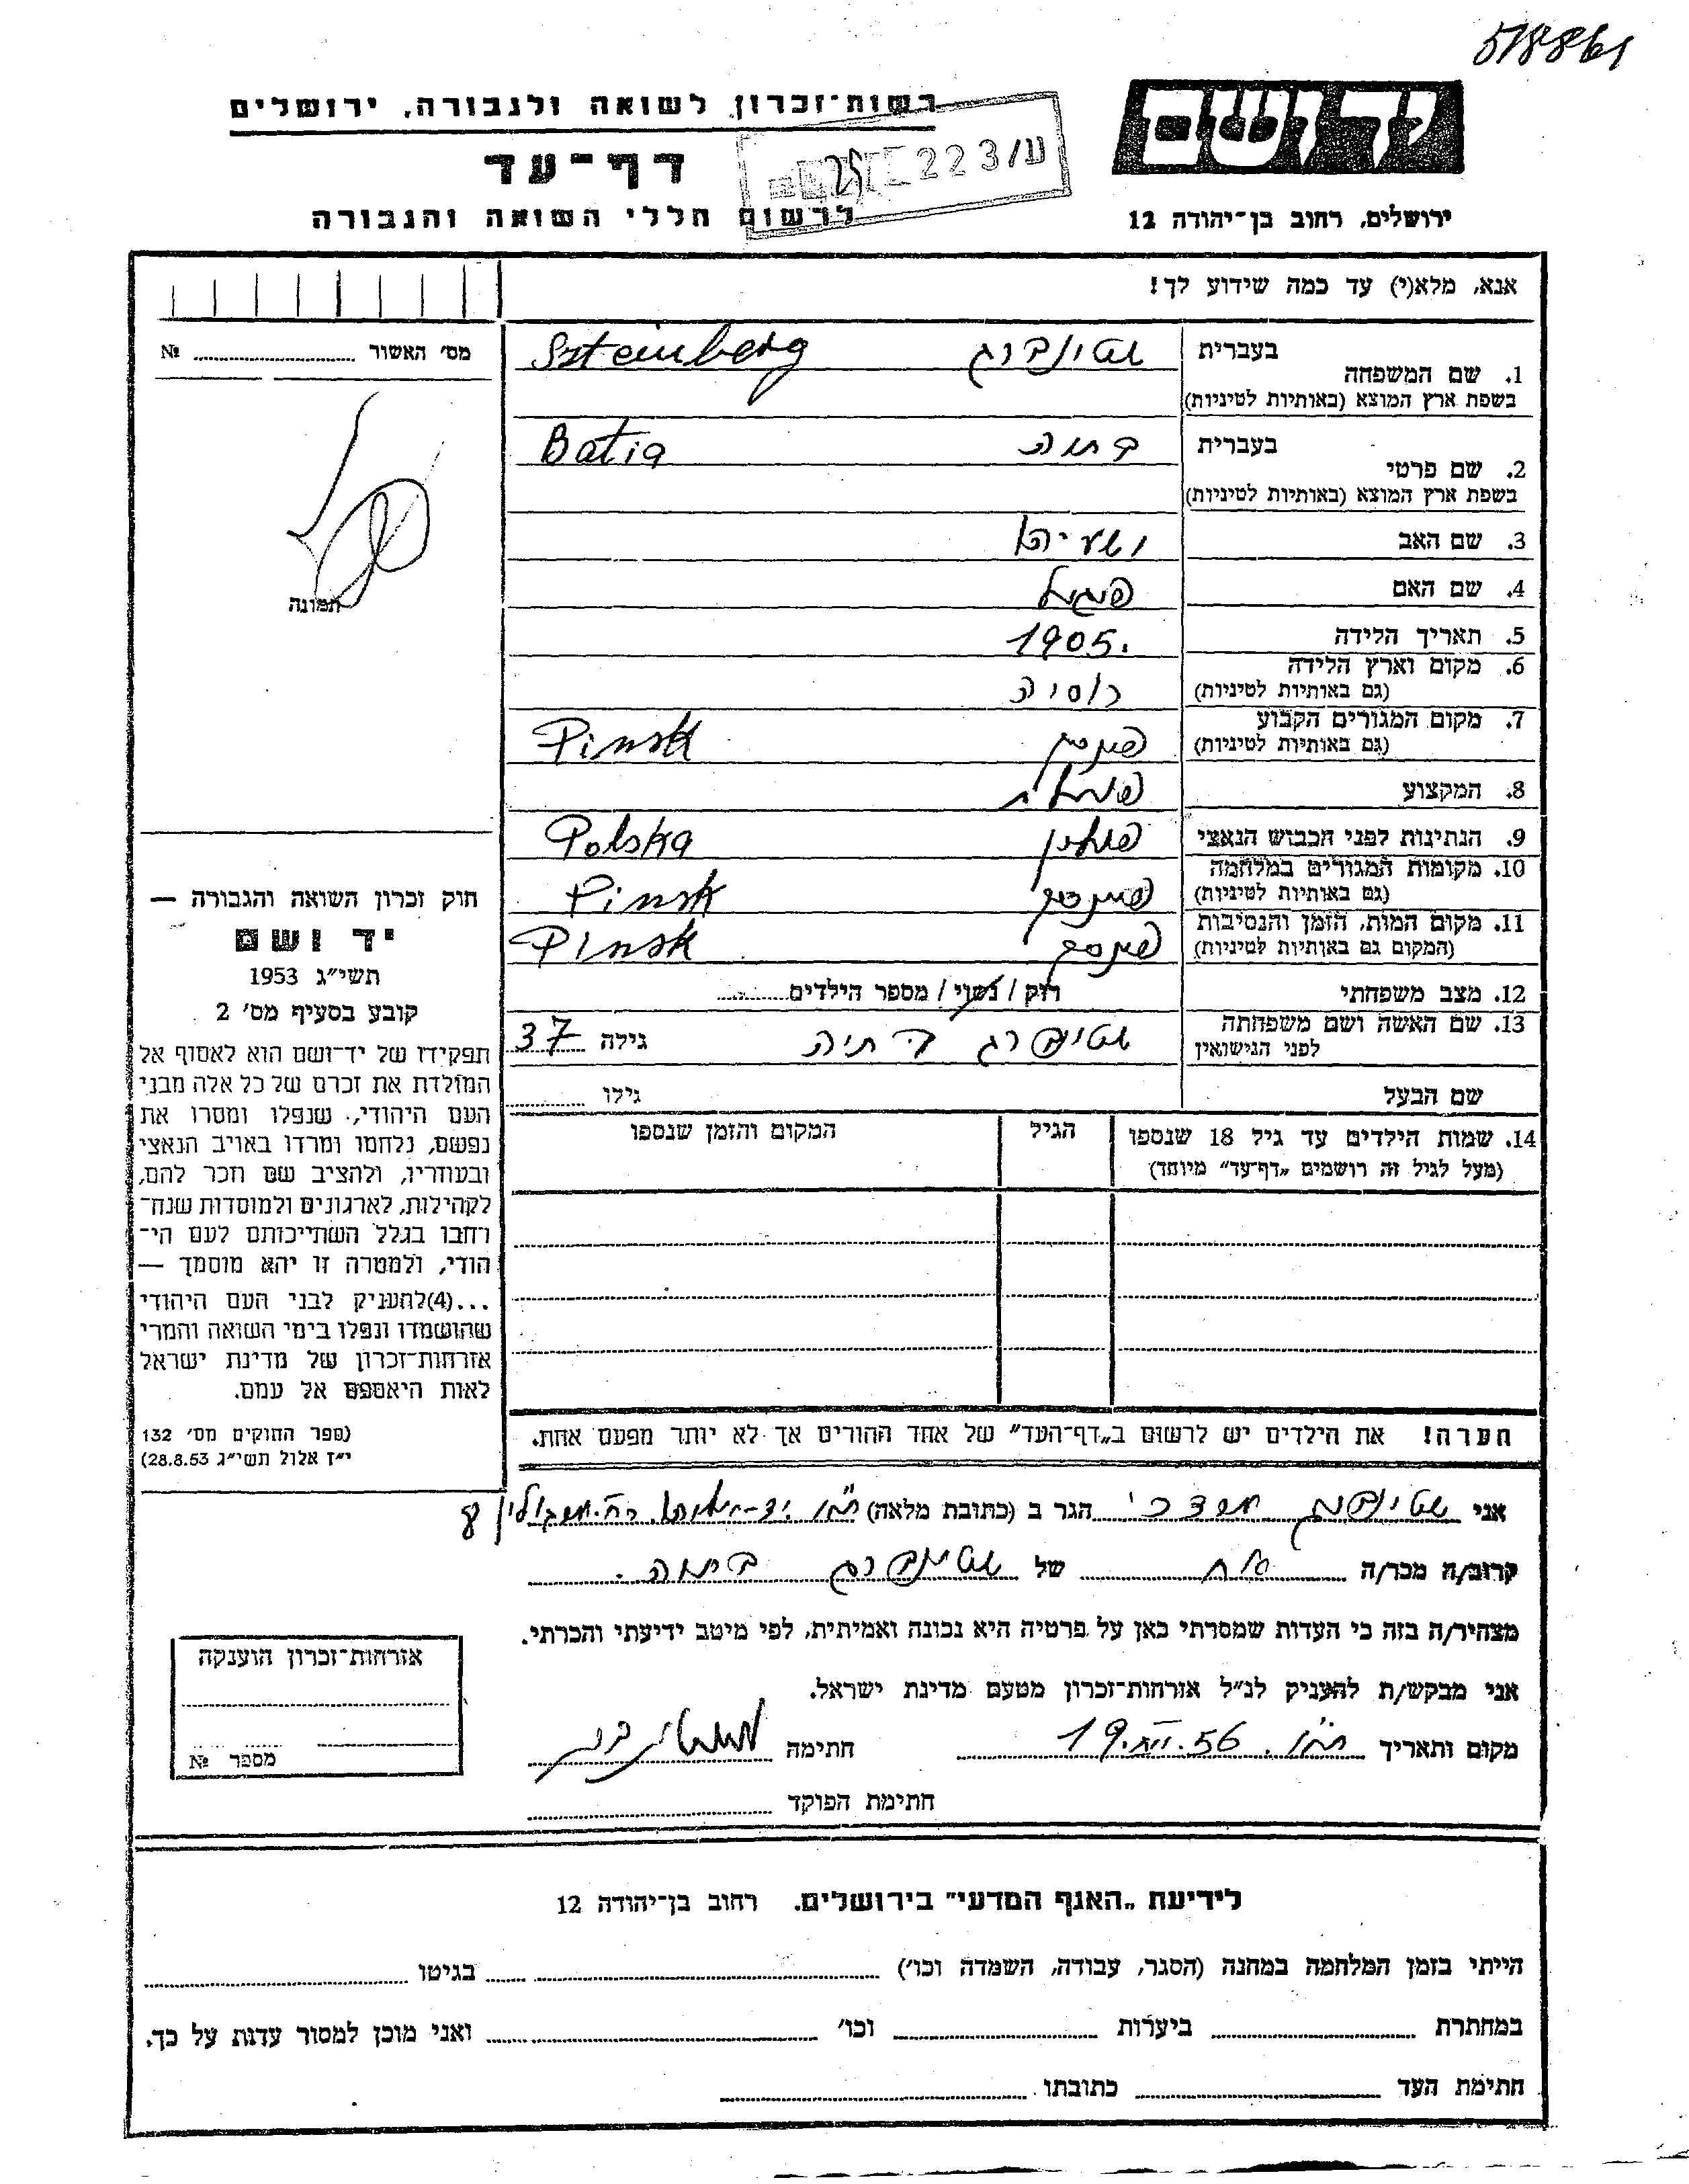 518861
רשות־זכרון לשואה ולגבורה, ירושלים
יד ושם
דף־עד
223/ע
לרשום חללי השואה והגבורה
ירושלים, רחוב בן־יהודה 12
אנא, מלא(י) עד כמה שידוע לך!
מס׳ האשור № 
1. שם המשפחה בעברית שטינברג Szteinberg
בשפת ארץ המוצא (באותיות לטיניות)
2. שם פרטי בעברית בתיה Batia
בשפת ארץ המוצא (באותיות לטיניות)
3. שם האב ישעיהו
4. שם האם פייגיל
תמונה
5. תאריך הלידה 1905.
6. מקום וארץ הלידה
(גם באותיות לטיניות) רוסיה
7. מקום המגורים הקבוע
(גם באותיות לטיניות) פינסק Pinsk
8. המקצוע
9. הנתינות לפני הכבוש הנאצי פולין Polska
10. מקומות המגורים במלחמה
(גם באותיות לטיניות) פינסק Pinsk
11. מקום המות, הזמן והנסיבות
(המקום גם באותיות לטיניות) פינסק Pinsk
12. מצב משפחתי רוק / נשוי / מספר הילדים
13. שם האשה ושם משפחתה
לפני הנישואין שטינברג בתיה גילה 37
שם הבעל גילו
14. שמות הילדים עד גיל 18 שנספו הגיל המקום והזמן שנספו
(מעל לגיל זה רושמים „דף־עד״ מיוחד)
הערה! את הילדים יש לרשום ב„דף־העד״ של אחד ההורים אך לא יותר מפעם אחת.
חוק זכרון השואה והגבורה —
יד ושם
תשי״ג 1953
קובע בסעיף מס׳ 2
תפקידו של יד־ושם הוא לאסוף אל
המולדת את זכרם של כל אלה מבני
העם היהודי, שנפלו ומסרו את
נפשם, נלחמו ומרדו באויב הנאצי
ובעוזריו, ולהציב שם וזכר להם,
לקהילות, לארגונים ולמוסדות שנח־
רחבו בגלל השתייכותם לעם הי־
הודי, ולמטרה זו יהא מוסמך —
...(4)להעניק לבני העם היהודי
שהושמדו ונפלו בימי השואה והמרי
אזרחות־זכרון של מדינת ישראל
לאות היאספם אל עמם.
(ספר החוקים מס׳ 132
י״ז אלול תשי״ג 28.8.53)
אני שטינברג מרדכי הגר ב (כתובת מלאה) ת״א יד־אליהו
קרוב/ה מכר/ה אח של שטינברג בתיה.
מצהיר/ה בזה כי העדות שמסרתי כאן על פרטיה היא נכונה ואמיתית, לפי מיטב ידיעתי והכרתי.
אני מבקש/ת להעניק לנ״ל אזרחות־זכרון מטעם מדינת ישראל.
מקום ותאריך ת״א. 19.VII.56 חתימה
חתימת הפוקד
אזרחות־זכרון הוענקה
מספר №
לידיעת „האגף המדעי״ בירושלים. רחוב בן־יהודה 12
הייתי בזמן המלחמה במחנה (הסגר, עבודה, השמדה וכו׳) בגיטו
במחתרת ביערות וכו׳ ואני מוכן למסור עדות על כך.
חתימת העד כתובתו